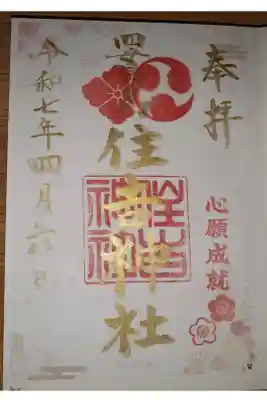 奉拝
心願成就
住吉神社
住吉神社
令和七年四月六日